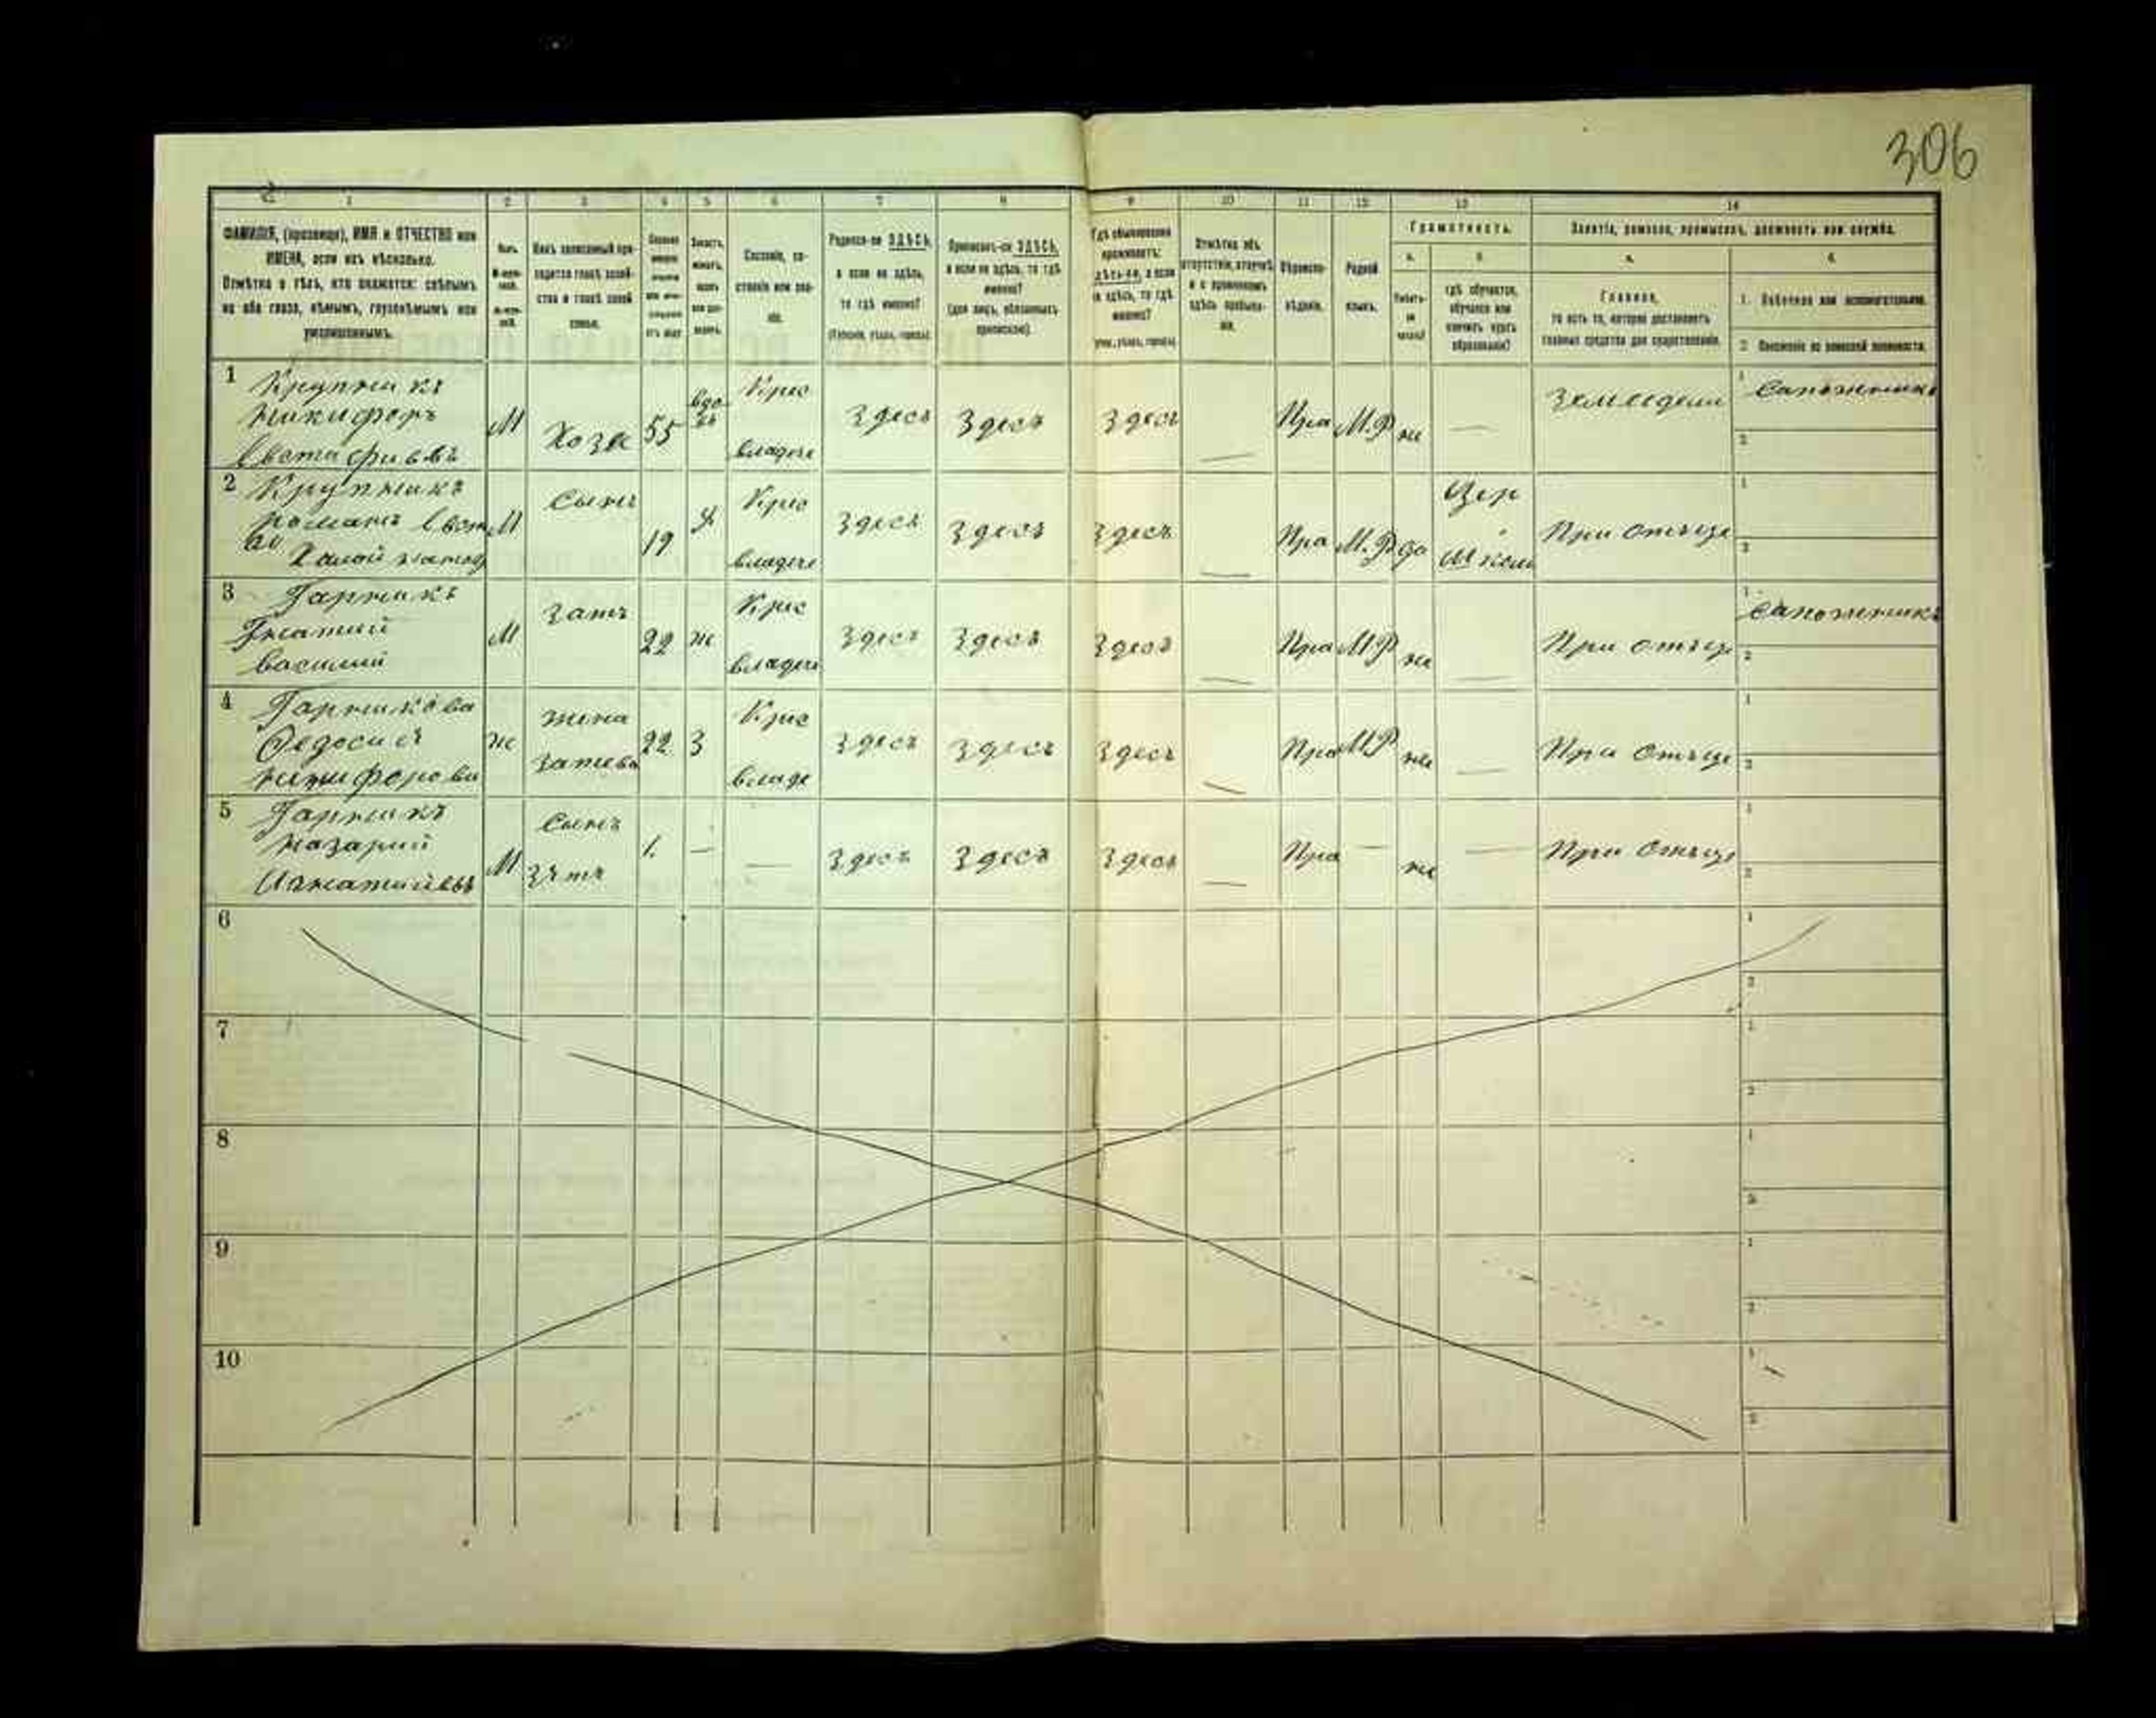 306
1 2 3 4 5 6 7 8 9 10 11 12 13 14
ФАМИЛІЯ, (прозвище), ИМЯ и ОТЧЕСТВО или
ИМЕНА, если ихъ нѣсколько.
Отмѣтка о тѣхъ, кто окажется: слѣпымъ
на оба глаза, нѣмымъ, глухонѣмымъ или
умалишеннымъ.
Полъ.
Какъ записанный при-
ходится главѣ хозяй-
ства и главѣ своей
семьи.
Состояніе, со-
словіе или зва-
ніе.
Родился-ли ЗДѢСЬ,
а если не здѣсь,
то гдѣ именно?
(Губернія, уѣздъ, городъ)
Приписанъ-ли ЗДѢСЬ,
а если не здѣсь, то гдѣ
именно?
(для лицъ, обязанныхъ
припискою)
Гдѣ обыкновенно
проживаетъ:
здѣсь-ли, а если
не здѣсь, то гдѣ
именно?
Отмѣтка объ
отсутствіи, отлучкѣ
и о временномъ
здѣсь пребыва-
ніи.
Вѣроиспо-
вѣданіе.
Родной
языкъ.
Грамотность.
а. б.
Умѣетъ-
ли
читать?
гдѣ обучается,
обучался или
кончилъ курсъ
образованія?
Занятіе, ремесло, промыселъ, должность или служба.
а. б.
Главное,
то есть то, которое доставляетъ
главныя средства для существованія.
1. Побочное или вспомогательное.
2. Положеніе по воинской повинности.
1 Крупникъ
Никифоръ
Евстафиевъ
М Хозя 55 вдо
въ
Крес
владече
Здесъ Здесъ Здесъ — Пра М.Р не — Земледели Сапожникъ
2 Крупникъ
Романъ
М Сынъ 19 Х
Крес
владече
Здесъ Здесъ Здесъ — Пра М.Р да
Цер
Шкои
При отъце
3 Гарникъ
Игнатий
василий
М Затъ 22 ж
Крес
владече
Здесъ Здесъ Здесъ — Пра М.Р не — При отъце Сапожникъ
4 Гарникова
Федосия
Никифорова
ж жена
Затева
22 З
Крес
владе
Здесъ Здесъ Здесъ — Пра М.Р не — При отъце
5 Гарникъ
Назарий
Игнатийевъ
М Сынъ
Зътъ
1. — — Здесъ Здесъ Здесъ — Пра — не — При отъце
6
7
8
9
10